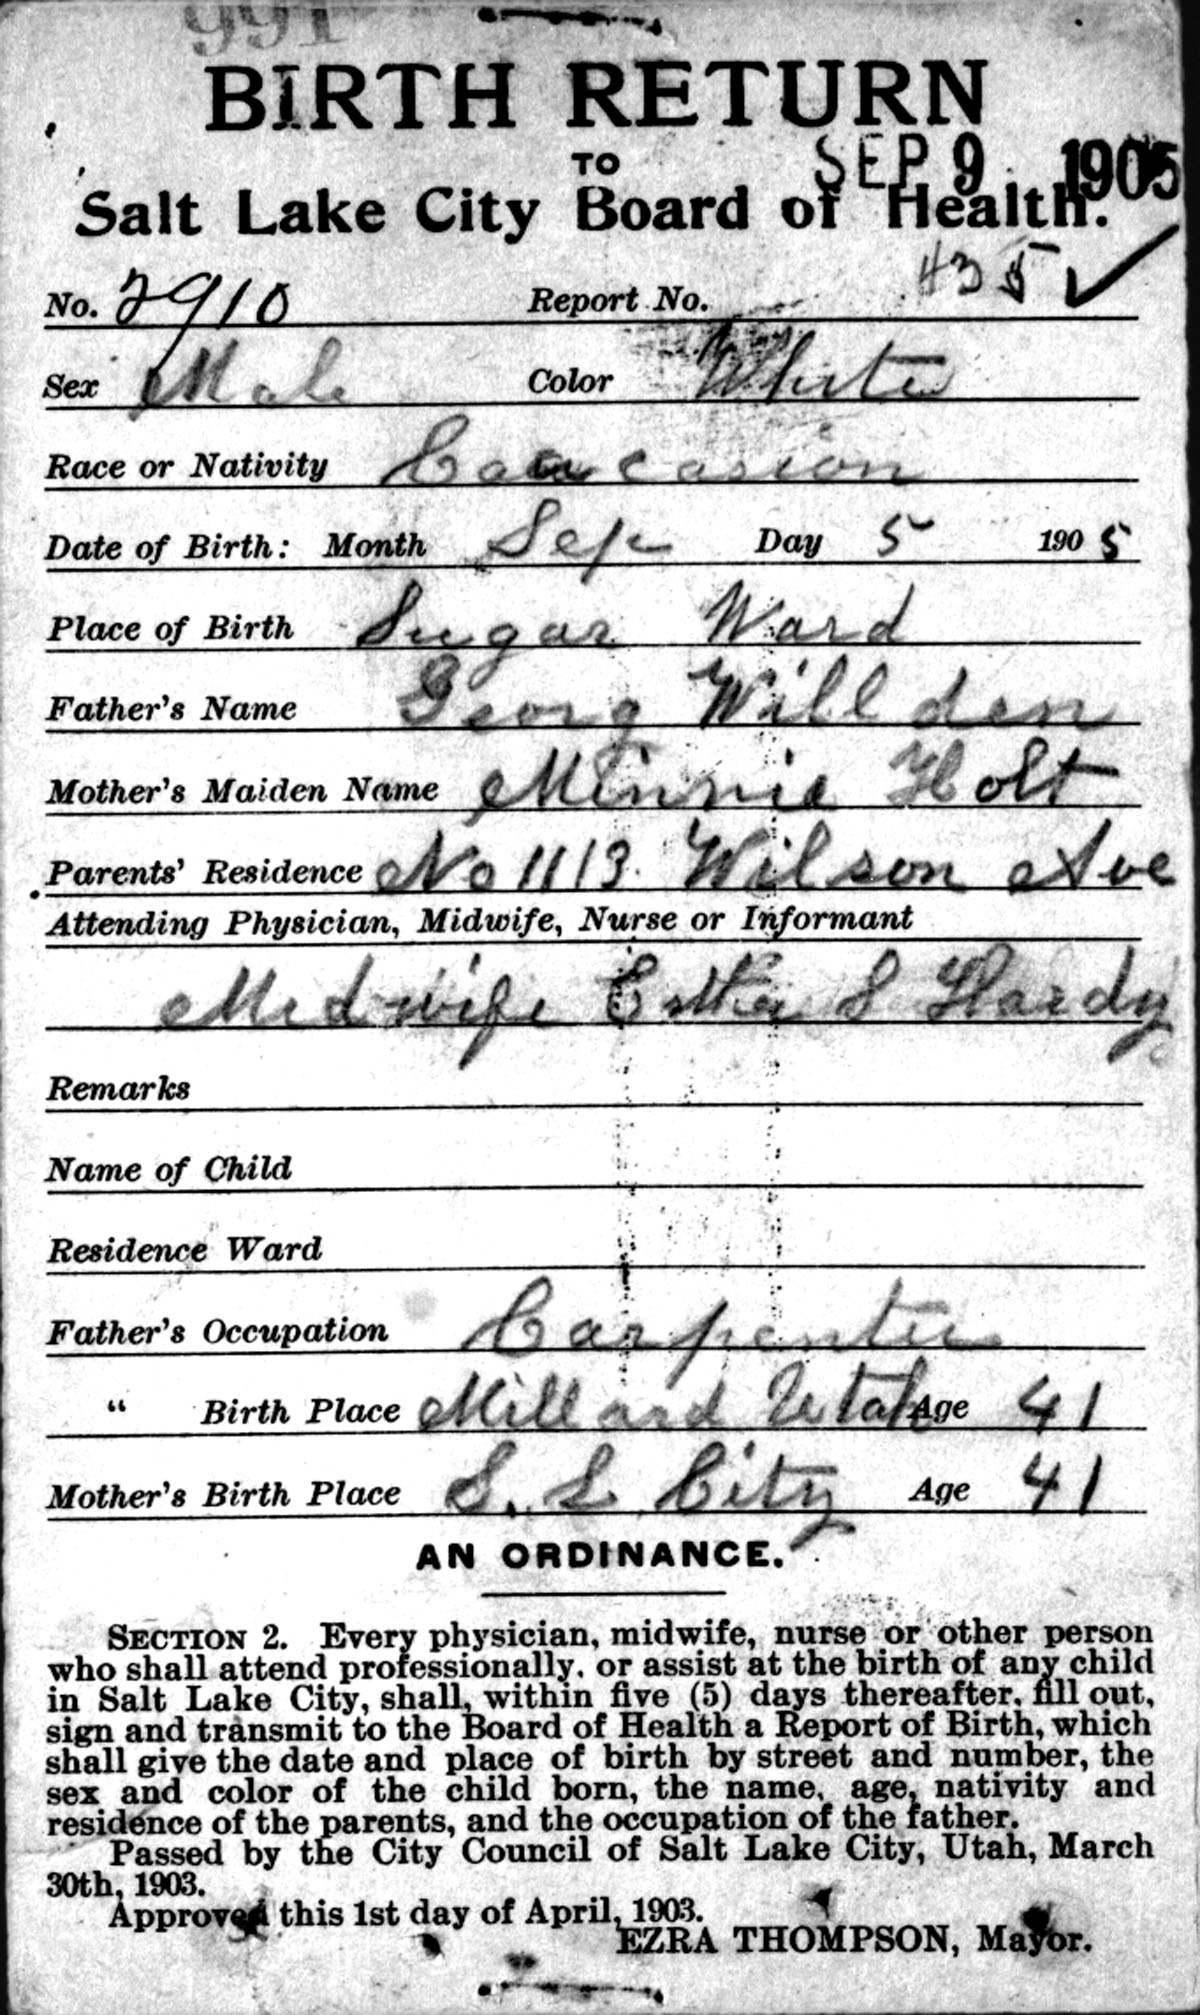 991
BIRTH RETURN
TO
SEP 9 1905
Salt Lake City Board of Health.
No. 2910 Report No. 435 ✓
Sex Male Color White
Race or Nativity Caucasion
Date of Birth: Month Sep Day 5 1905
Place of Birth Sugar Ward
Father's Name Georg Willden
Mother's Maiden Name Minnie Holt
Parents' Residence No 1113 Wilson Ave
Attending Physician, Midwife, Nurse or Informant
Midwife Esther S Hardy
Remarks
Name of Child
Residence Ward
Father's Occupation Carpenter
" Birth Place Millard Utah Age 41
Mother's Birth Place S. L City Age 41
AN ORDINANCE.
SECTION 2. Every physician, midwife, nurse or other person
who shall attend professionally, or assist at the birth of any child
in Salt Lake City, shall, within five (5) days thereafter, fill out,
sign and transmit to the Board of Health a Report of Birth, which
shall give the date and place of birth by street and number, the
sex and color of the child born, the name, age, nativity and
residence of the parents, and the occupation of the father.
Passed by the City Council of Salt Lake City, Utah, March
30th, 1903.
Approved this 1st day of April, 1903.
EZRA THOMPSON, Mayor.